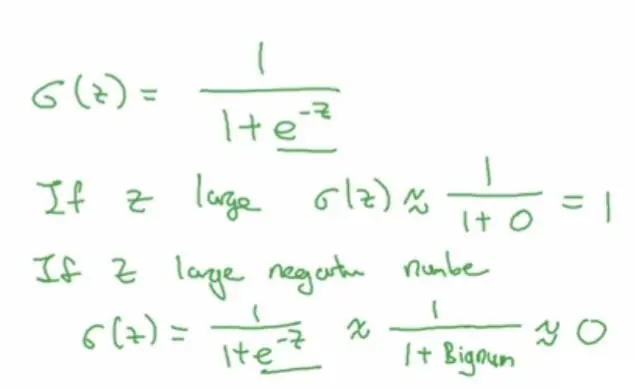 σ(z) = 1/(1 + e^(-z))
If z large σ(z) ≈ 1/(1 + 0) = 1
If z large negatin numbe
σ(z) = 1/(1+e^(-z)) ≈ 1/(1 + Bignum) ≈ 0